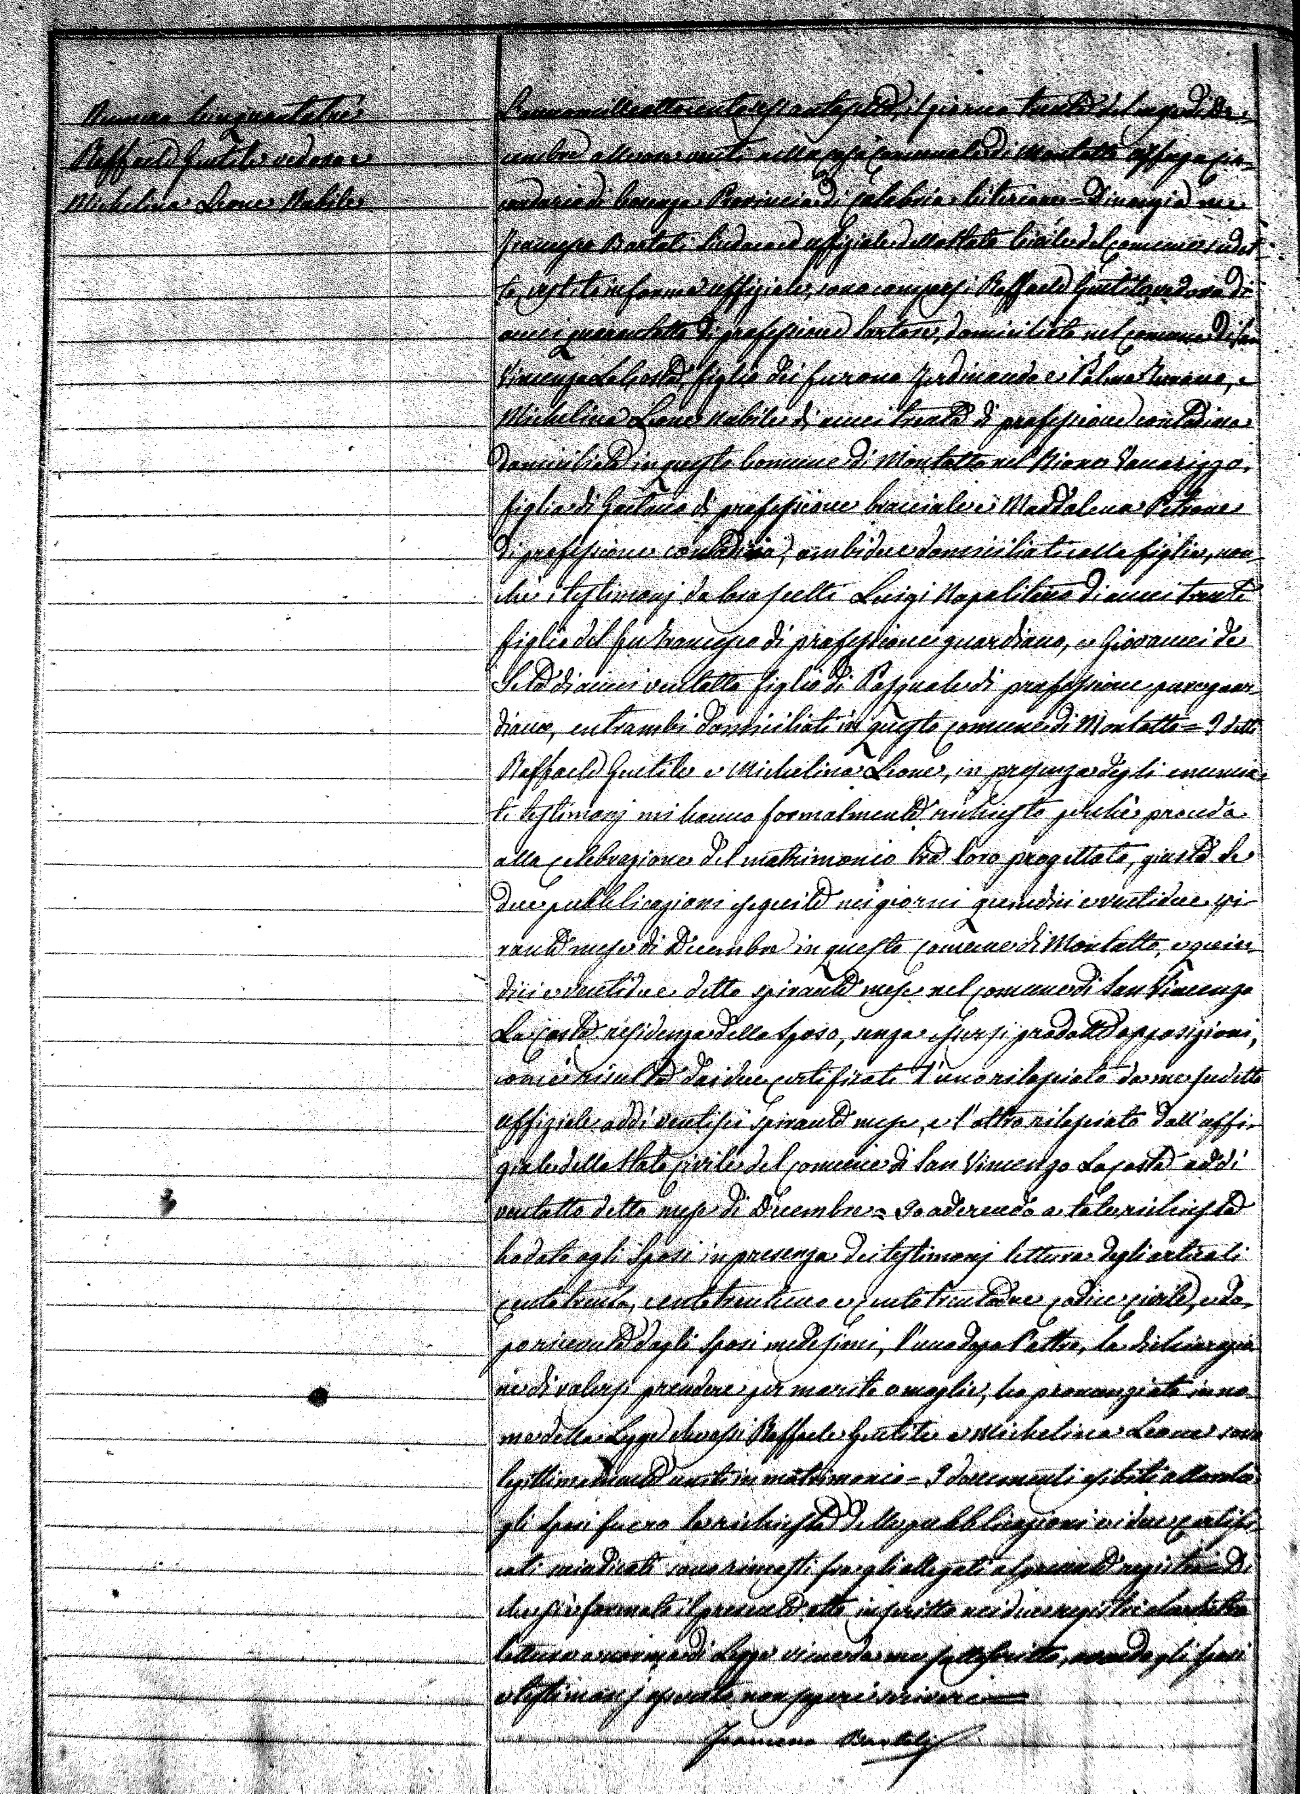 Numero Cinquantatre
Raffaele Gentile vedovo e
Michelina Leone Nubile
L'anno mille ottocento sessantasette, il giorno trenta del mese di De-
cembre alle ore venti nella casa Comunale di Montalto Uffugo Cir-
condario di Cosenza Provincia di Calabria Citeriore = Dinanzi a me
Francesco Bartoli Sindaco ed uffiziale dello Stato Civile del Comune sudet-
to, vestito in forma uffiziale, sono comparsi Raffaele Gentile vedovo di
anni quarantotto di professione sartore, domiciliato nel comune di San
Vincenzo La Costa, figlio dei furono Ferdinando e Palma, e
Michelina Leone nubile di anni trenta di professione contadina
domiciliata in questo Comune di Montalto nel Rione Vaccarizzo,
figlia di Gaetano di professione bracciale e Maddalena Petrone
di professione contadina, ambidue domiciliati colla figlia, non-
chè i testimonj da loro scelti Luigi Napolitano di anni trenta
figlio del fu Francesco di professione guardiano, e Giovanni de
Seta di anni ventotto figlio di Pasquale di professione pure guar-
diano, entrambi domiciliati in questo comune di Montalto = I detti
Raffaele Gentile e Michelina Leone, in presenza degli enuncia-
ti testimonj mi hanno formalmente richiesto perchè proceda
alla celebrazione del matrimonio tra loro progettato, giusta le
due pubblicazioni eseguite nei giorni quindici e ventidue spi-
rante mese di Decembre in questo comune di Montalto, e quin-
dici e ventidue detto spirante mese nel comune di San Vincenzo
La Costa residenza dello Sposo, senza essersi prodotte opposizioni,
come risulta dai due certificati l'uno rilasciato da me sudetto
uffiziale addì ventisei spirante mese, e l'altro rilasciato dall'uffi-
ziale dello Stato Civile del comune di San Vincenzo La Costa addì
ventotto detto mese di Decembre = Io aderendo a tale richiesta
ho dato agli Sposi in presenza dei testimonj lettura degli articoli
centotrenta, centotrentuno e centotrentadue codice civile, e do-
po ricevuta dagli Sposi medesimi, l'uno dopo l'altro, la dichiarazio-
ne di volersi prendere per marito e moglie, ho pronunziato in no-
me della Legge che essi Raffaele Gentile e Michelina Leone sono
legittimamente uniti in matrimonio = I documenti esibiti
gli Sposi furo la richiesta delle pubblicazioni e i due certifi-
cati indicati sono rimasti fra gli allegati al presente registro = Di
che si è formato il presente atto inscritto nei due registri
lettura a norma di Legge viene da me sottoscritto, avendo gli sposi
e testimonj asserito non sapere scrivere =
Francesco Bartoli